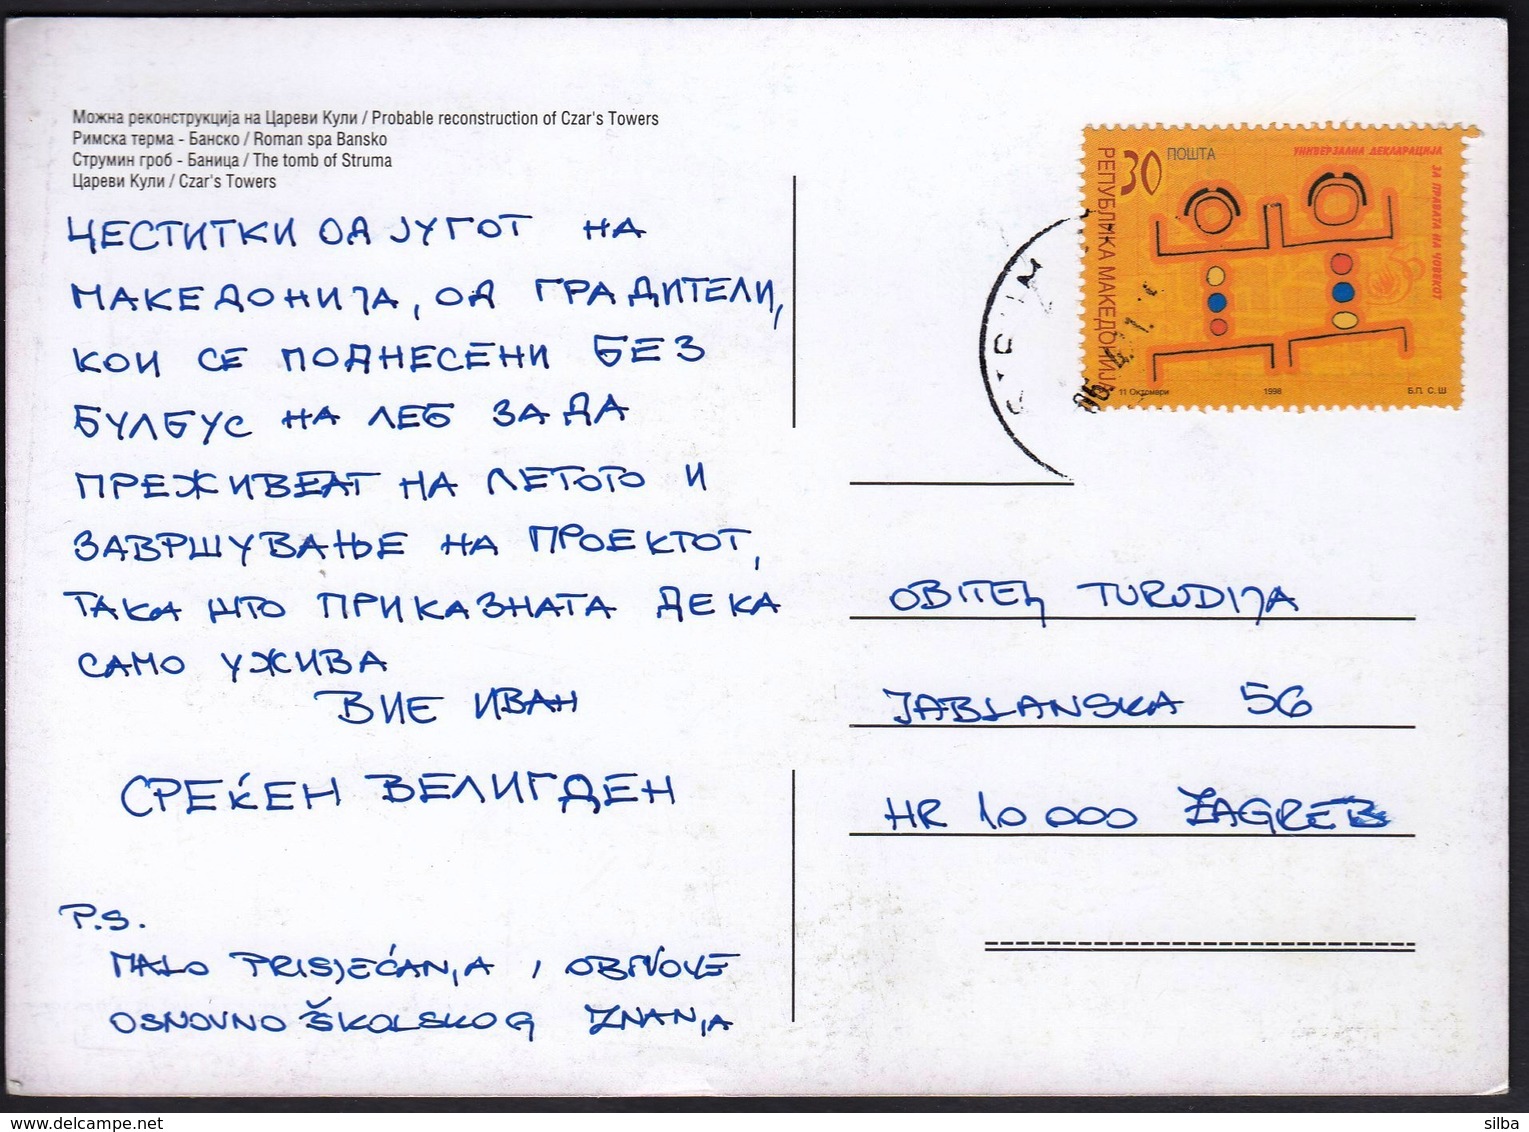 Можна реконструкција на Цареви Кули / Probable reconstruction of Czar's Towers
Римска терма - Банско / Roman spa Bansko
Струмин гроб - Баница / The tomb of Struma
Цареви Кули / Czar's Towers
ЧЕСТИТКИ ОД ЈУГОТ НА
МАКЕДОНИЈА, ОД ГРАДИТЕЛИ,
КОИ СЕ ПОДНЕСЕНИ БЕЗ
БУЛБУС НА ЛЕБ ЗА ДА
ПРЕЖИВЕАТ НА ЛЕТОТО И
ЗАВРШУВАЊЕ НА ПРОЕКТОТ,
ТАКА ШТО ПРИКАЗНАТА ДЕКА
САМО УЖИВА
ВИЕ ИВАН
СРЕЌЕН ВЕЛИГДЕН
P.S.
MALO PRISJEĆANJA I OBNOVE
OSNOVNO ŠKOLSKOG ZNANJA
РЕПУБЛИКА МАКЕДОНИЈА
30 ПОШТА
УНИВЕРЗАЛНА ДЕКЛАРАЦИЈА
ЗА ПРАВАТА НА ЧОВЕКОТ
50
11 Октомври 1998 Б.П. С. Ш
OBITELJ TURUDIJA
JABLANSKA 56
HR 10 000 ZAGREB
silba